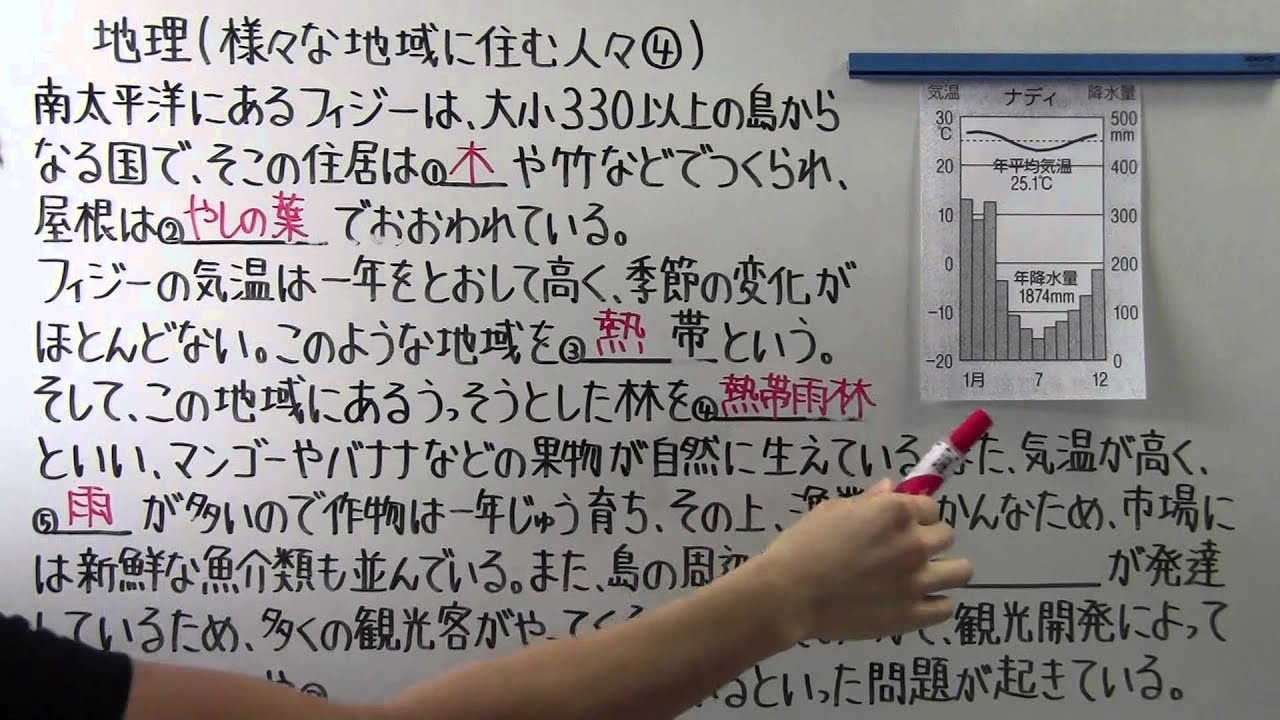 地理(様々な地域に住む人々④)
南太平洋にあるフィジーは、大小330以上の島から
なる国で、そこの住居は①木や竹などでつくられ、
屋根は②やしの葉でおおわれている。
フィジーの気温は一年をとおして高く、季節の変化が
ほとんどない。このような地域を③熱帯という。
そして、この地域にあるうっそうとした林を④熱帯雨林
といい、マンゴーやバナナなどの果物が自然に生えている また、気温が高く、
⑤雨が多いので作物は一年じゅう育ち、その上、漁業 かんなため、市場に
は新鮮な魚介類も並んでいる。また、島の周辺 が発達
しているため、多くの観光客がやってくる 、観光開発によって
や といった問題が起きている。
気温 ナディ 降水量
30 500
℃ mm
20 400
年平均気温
25.1℃
10 300
0 200
年降水量
1874mm
-10 100
-20 0
1月 7 12